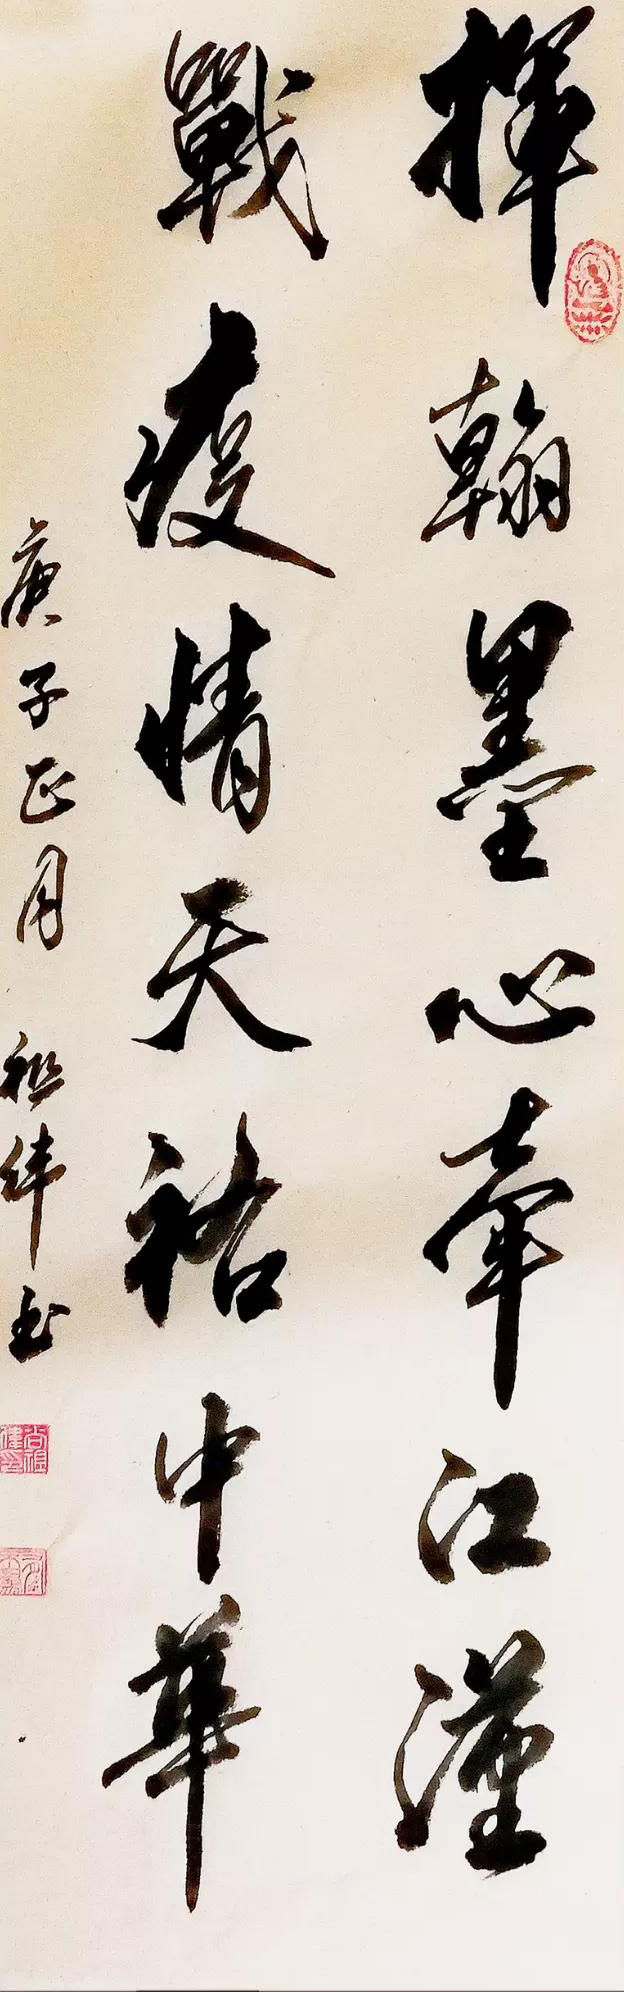 揮翰墨心牽江漢
戰疫情天祐中華
庚子正月 祖緯书